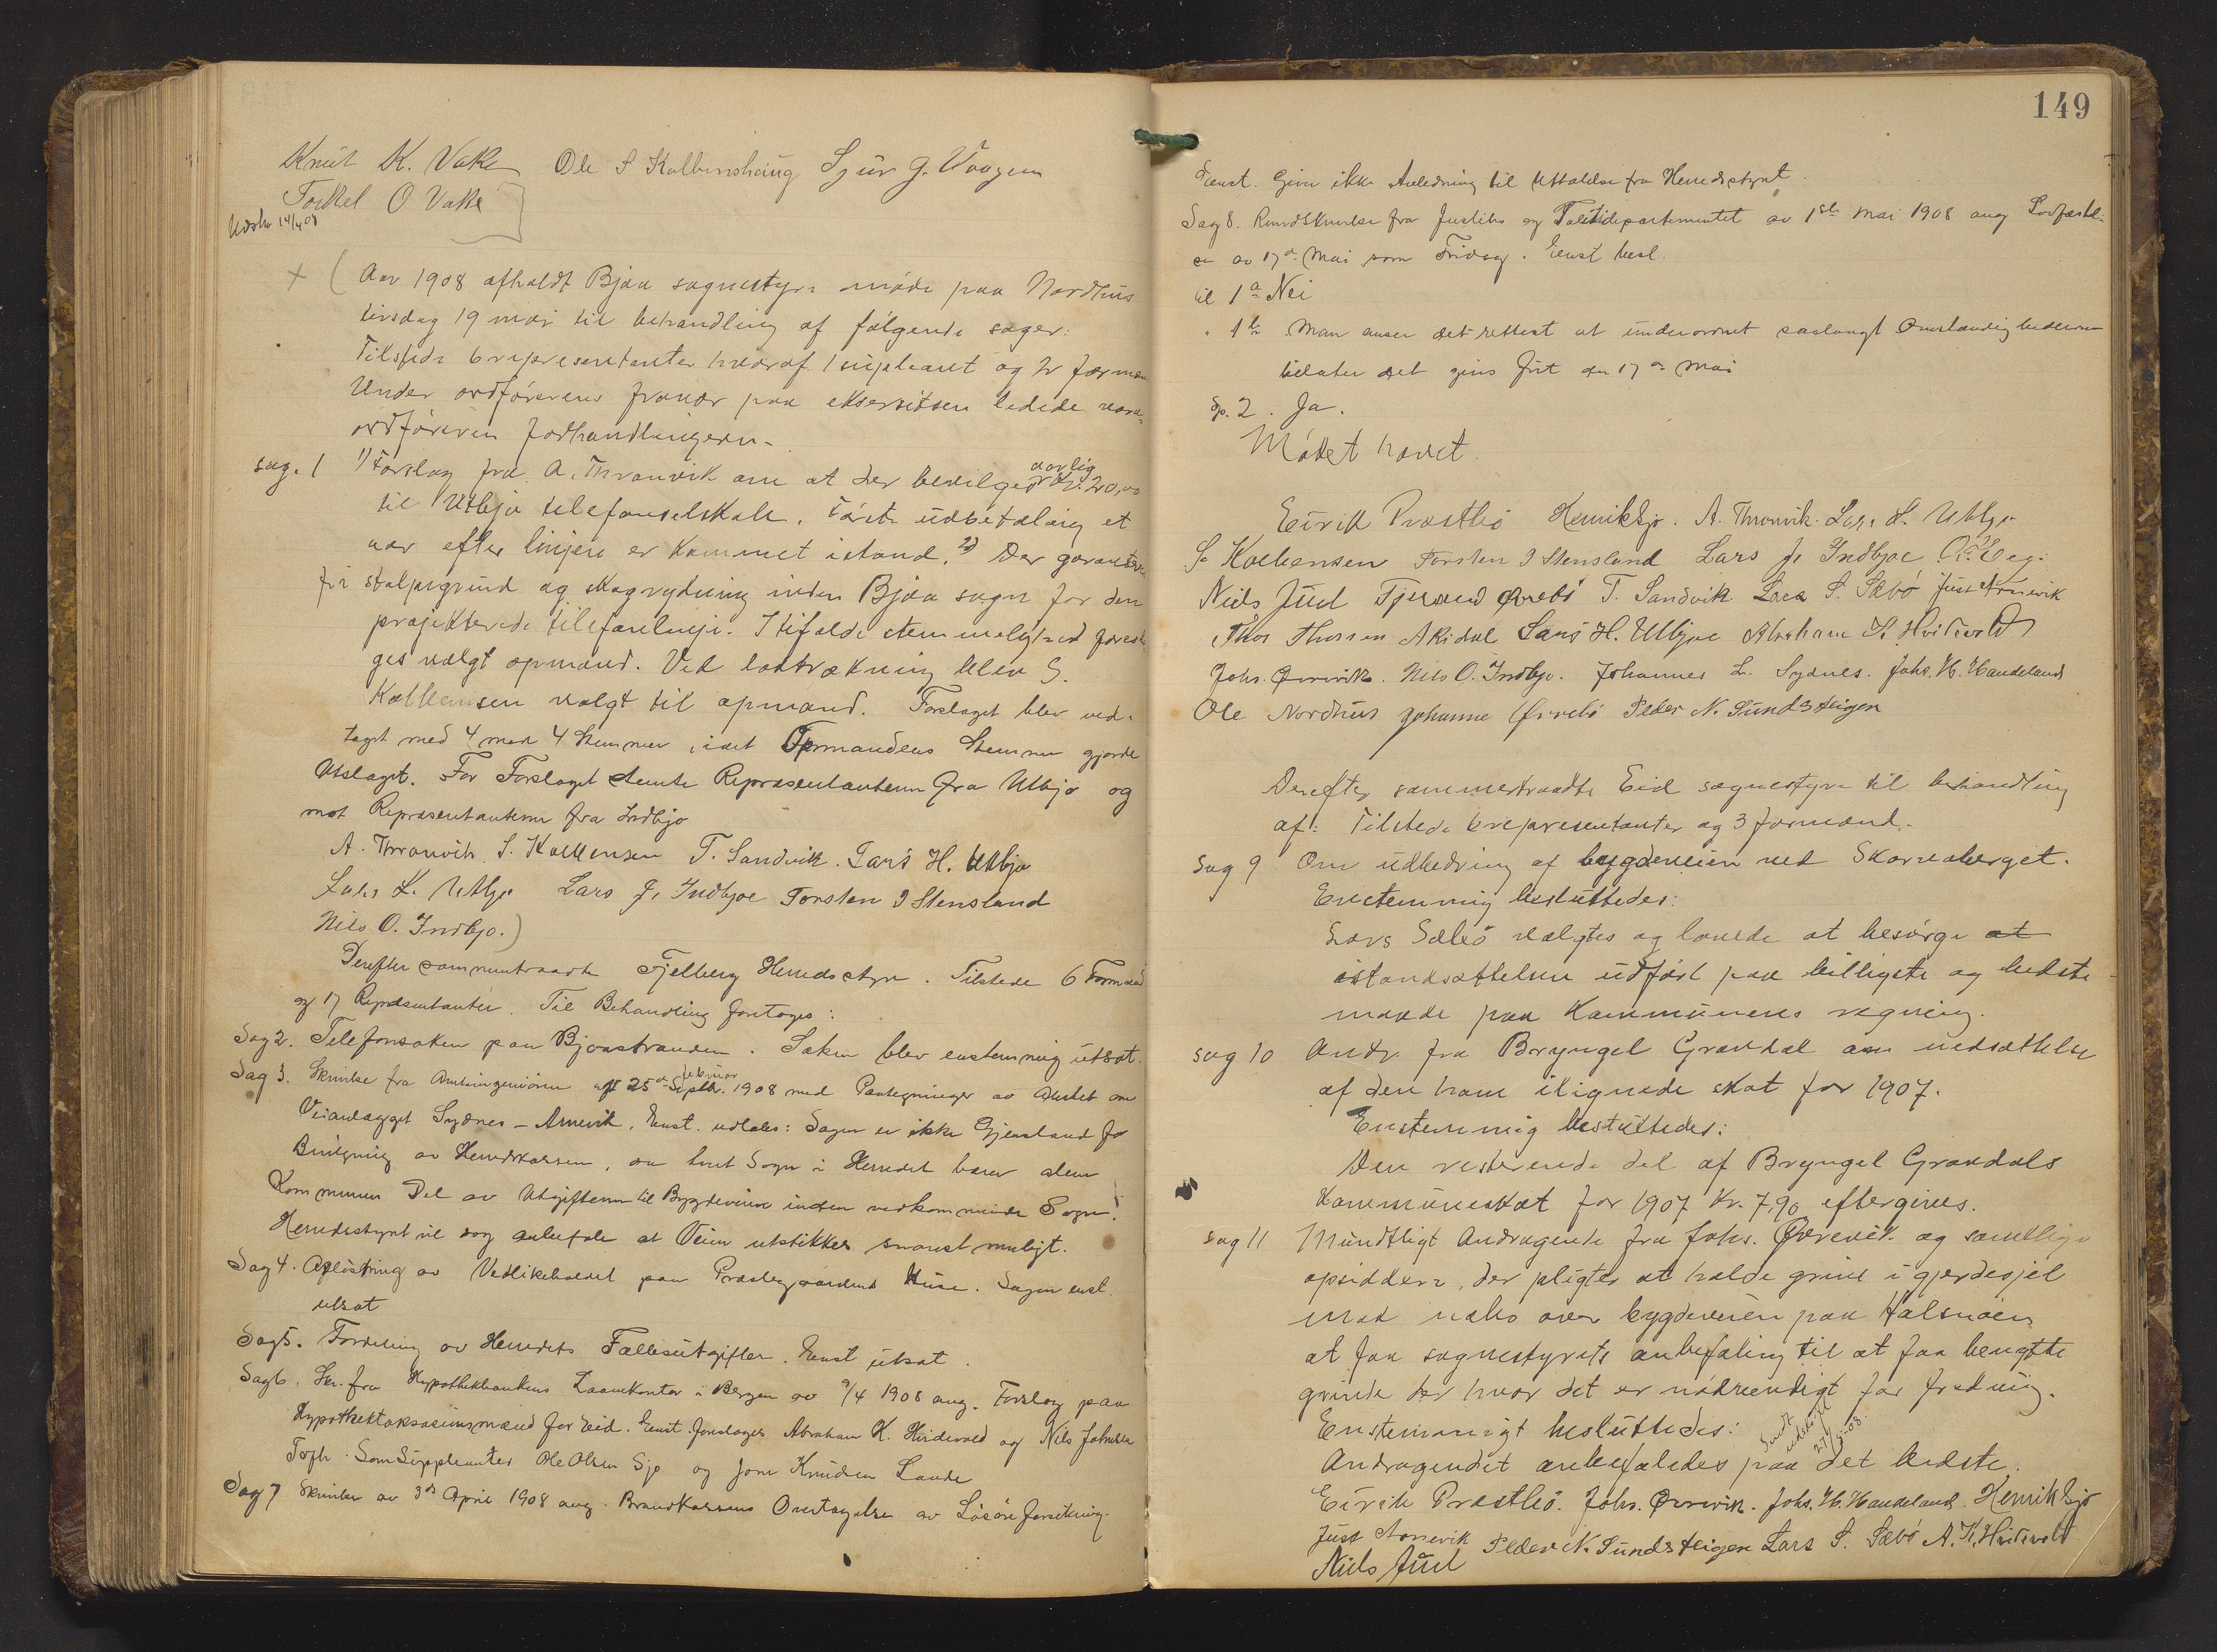 Knut K. Vake Ole S Kolbenshaug Sjur J. Vaagen
Torkel O Vake
14/4 08
+ ( Aar 1908 afholdt Bjoa sognestyre møde paa Nordhus
tirsdag 19 mai til behandling af følgende sager:
Tilstede 6 representanter hvoraf 1 supleant og 2 formæn
Under ordførerens fravær paa eksersitsen ledede vara-
ordføreren forhandlingern-
sag. 1 1) Forslag fra A. Thronvik om at der bevilges aarlig kr. 20,00
til Utbjo telefonselskab, første udbetaling et
aar efter linjen er kommet istand. 2) Der garanteres
fri stolpegrund og skogrydning inden Bjoa sogn for den
projekterede telefonlinje. I tilfælde stemmelighed foreta-
ges valgt opmand. Ved lodtrækning blev S.
Kolbensen valgt til opmand. Forslaget blev ved-
taget med 4 mod 4 Stemmer, idet Opmandens Stemme gjorde
Utslaget. For Forslaget stemte Repræsentanterne fra Utbjo og
mot Repræsentanterne fra Indbjo
A. Thronvik. S. Kolbensen T. Sandvik. Lars H. Utbjo
Lars L. Utbjo Lars J. Indbjoe Torsten I Stensland
Nils O. Indbjo.)
Derefter sammentraadte Fjelberg Heredsstyre. Tilstede 6 Formænd
og 17 Repræsentanter. Til Behandling foretoges:
Sag 2. Telefonsaken paa Bjoastranden. Saken blev enstemmig utsat.
Sag 3. Skrivelse fra Amtsingeniøren af 25de Septbr. februar 1908 med Paategninger av Amtet om
Veianlægget Sydnes - Arnevik. Enst. udtales: Sagen er ikke Gjenstand for
Bevilgning av Heredskassen, da hvert Sogn i Herredet bærer alene
Kommunens Del av Utgifterne til Bygdeveiene inden vedkommende Sogn.
Heredsstyret vil dog anbefale at Veien utstikkes snarest muligt.
Sag 4. Avløsning av Vedlikeholdet paa Prestegaardens Huse. Sagen enst.
utsat
Sag 5. Fordeling av Herredets Fællesutgifter. Enst utsat.
Sag 6. Skr. fra Hypothekbankens Laanekontor i Bergen av 9/4 1908 ang. Forslag paa
Hypothektaksationsmænd for Eid. Enst. foreslages Abraham K. Hvidevold og Nils Johnsen
Tofte. Som Suppleanter Ole Olsen Sjo og Jone Knudsen Lande
Sag 7 Skrivelse av 3de April 1908 ang. Brandkassens Overtagelse av Løsøre forsikring.
149
Enst. Giver ikke Anledning til Uttalelse fra Heredsstyret.
Sag 8. Rundskrivelse fra Justits og Politidepartementet av 1ste Mai 1908 ang Lovfæstel-
se av 17de Mai som Fridag. Enst besl.
til 1a Nei
" 1b Man anser det rettest at underordnet saalangt Omstændighederne
tillater det gives frit den 17de Mai
Sp. 2. Ja.
Mødet hævet.
Eirik Præstbø Henrik Sjo. A. Thronvik. Lars L. Utbjo
S. Kolbensen Torsten I Stensland Lars J. Indbjoe
Niels Juul Tjerand Øvrebø T. Sandvik Lars S. Sæbø Just Arnevik
Thor Thorsen Akidal Lars H. Utbjoe Abraham K. Hvidevold
Johs. Øvrevik. Nils O. Indbjo. Johannes L. Sydnes. Johs. H. Handeland
Ole Nordhus Johanne Øvrebø Peder N. Sundsteigen
Derefter sammentraadte Eid sognestyre til behandling
af: Tilstede 6 representanter og 3 formænd.
Sag 9 Om udbedring af bygdeveien ved Skarvaberget.
Enstemmig besluttedes:
Lars Sæbø valgtes og lovede at besørge at
istandsættelsen udført paa billigste og bedste
maade paa Kommunens regning.
sag 10 Andr. fra Bryngel Gravdal om nedsættelse
af den ham ilignede skat for 1907.
Enstemmig besluttedes:
Den resterende del af Bryngel Gravdals
Kommuneskat for 1907 Kr. 7,90 eftergives.
sag 11 Mundtligt Andragende fra Johs. Øvrevik og samtlige
opsiddere, der pligter at holde grind i gjerdesjel
mod nabo over bygdeveien paa Halsnøen,
at faa sognestyrets anbefaling til at faa benytte
grinde der hvor det er nødvendigt for fredning.
Enstemmigt besluttedes:
Sendt
27/5-08.
Andragendet anbefaledes paa det bedste.
Eirik Præstbø. Johs. Øvrevik. Johs. H. Handeland. Henrik Sjo
Just Arnevik Peder N. Sundsteigen Lars S. Sæbø A. K. Hvidevold
Niels Juul